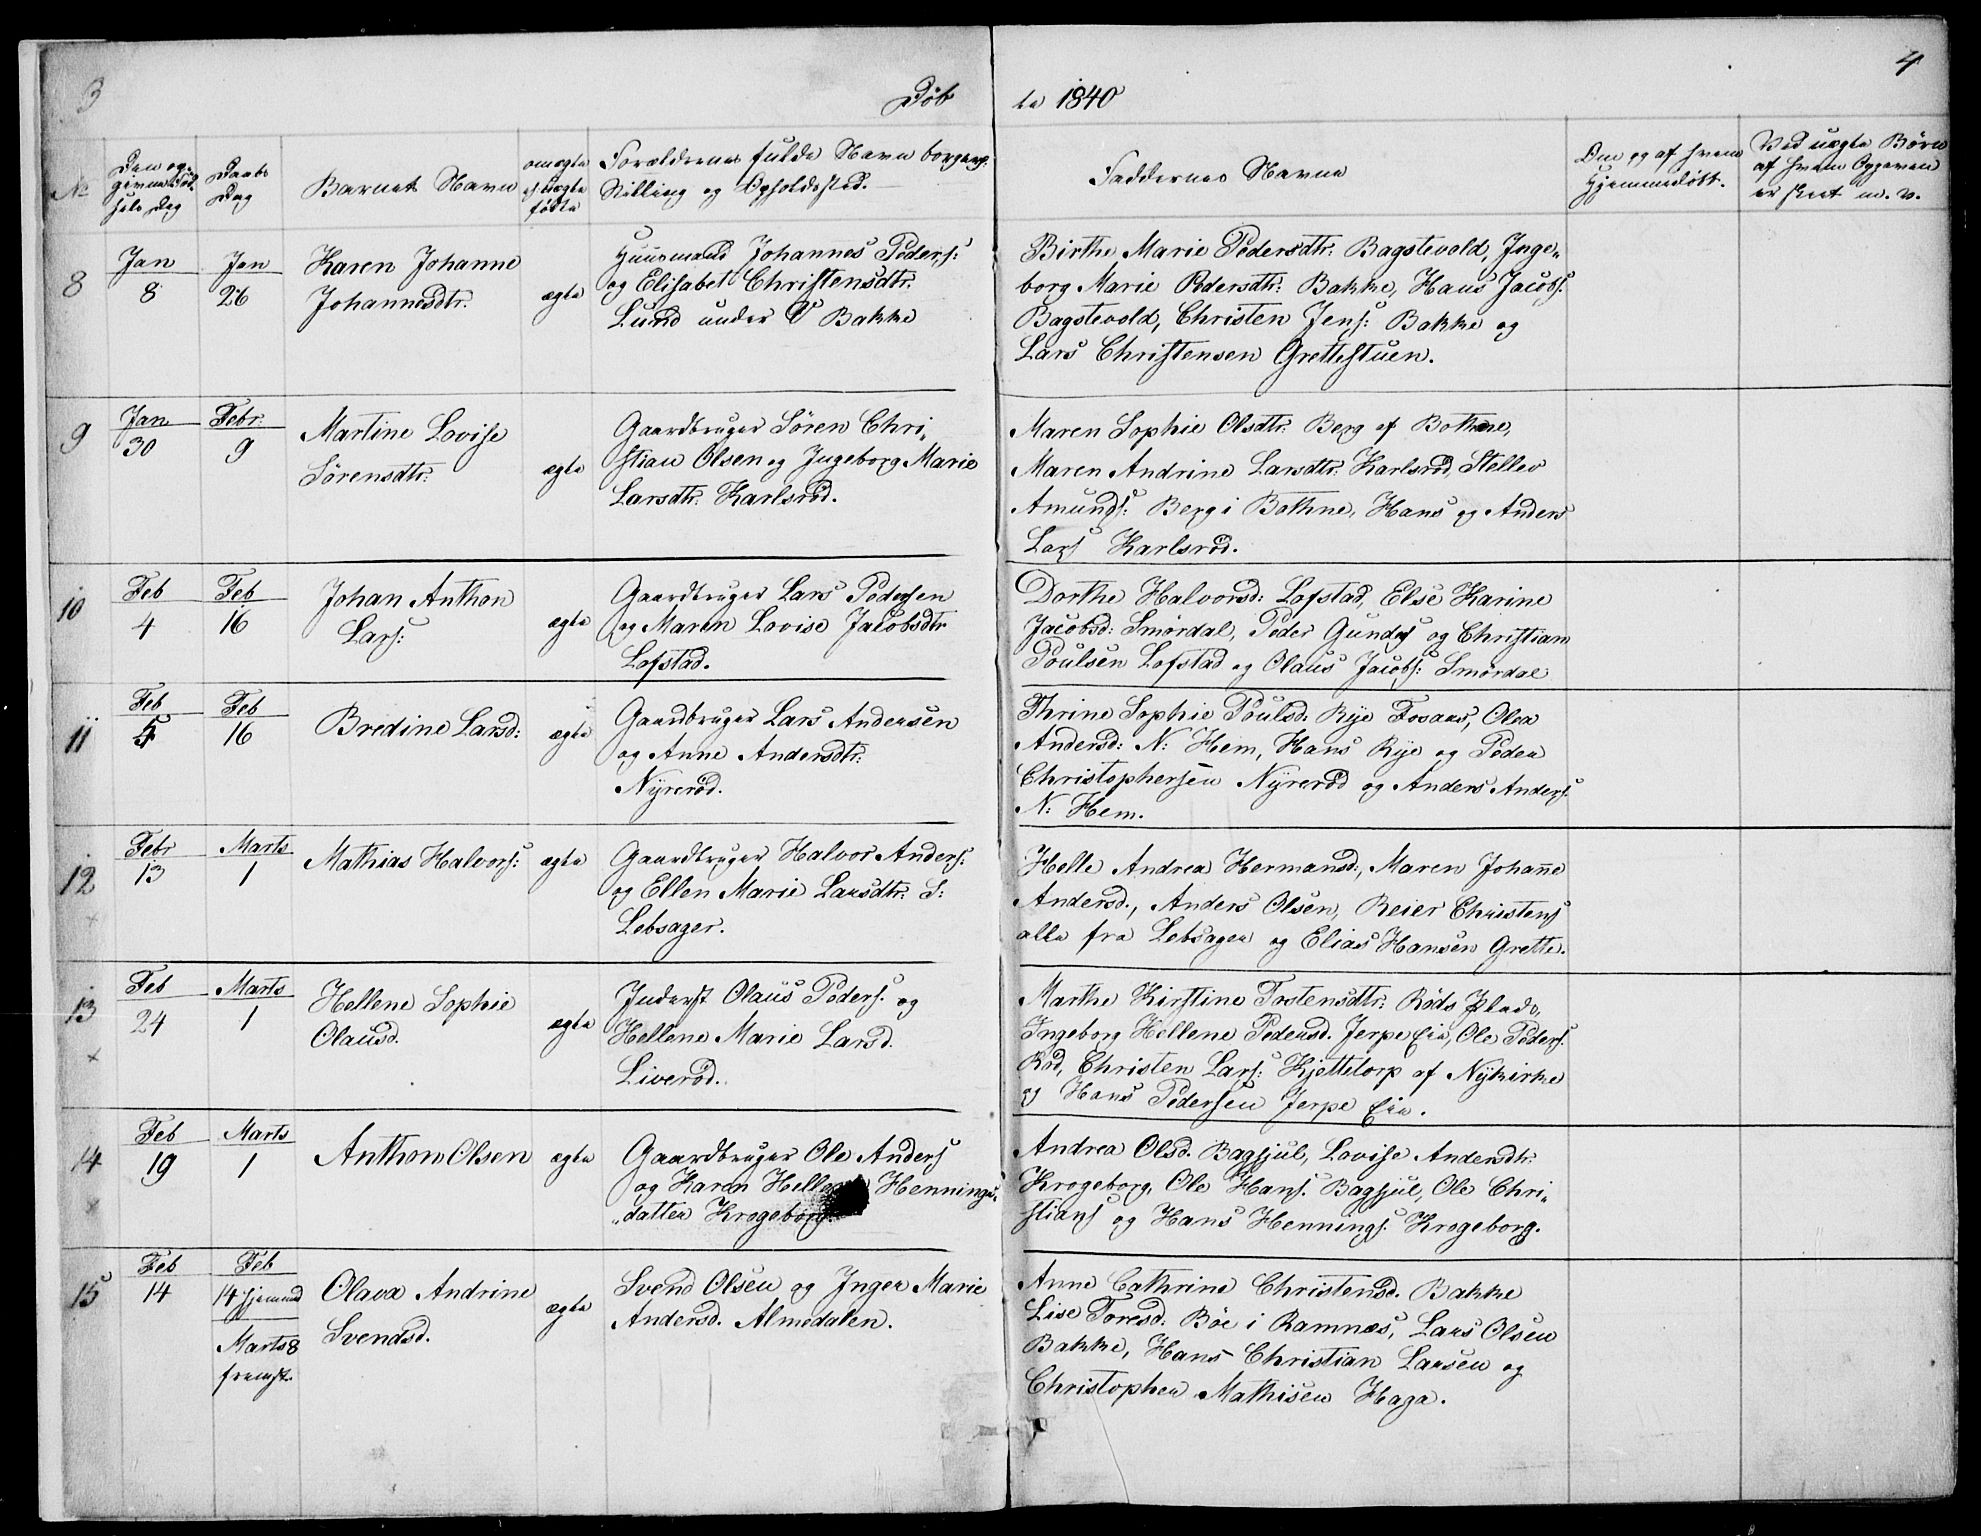 3
Døb
te 1840
4
No
Den opgivne Fødsels Dag
Daabs Dag
Barnets Navn
om ægte el. uægte fødte
Forældrenes fulde Navn borgerl:
Stilling og Opholdssted.
Faddernes Navne
Om og af hvem
Hjemmedøbt.
Ved uægte Børn
af hvem Opgaven
er skeet m. v.
8
Jan
8
Jan
26
Karen Johanne
Johannesdtr.
ægte
Huusmand Johannes Peders:
og Elisabet Christensdtr.
Lund under V Bakke
Birthe Marie Pedersdtr: Bagstevold, Inge„
borg Marie Pedersdtr: Bakke, Hans Jacobs:
Bagstevold, Christen Jens: Bakke og
Lars Christensen Grettestuen.
9
Jan
30
Febr:
9
Martine Lovise
Sørensdtr:
ægte
Gaardbruger Sören Chri„
stian Olsen og Ingeborg Marie
Larsdtr. Karlsröd.
Maren Sophie Olsdtr: Berg af Bothne,
Maren Andrine Larsdtr: Karlsröd, Steller
Amunds: Berg i Bothne, Hans og Anders
Lars Karlsröd.
10
Feb
4
Feb
16
Johan Anthon
Lars:
ægte
Gaardbruger Lars Pedersen
og Maren Lovise Jacobsdtr
Lofstad.
Dorthe Halvorsd: Lofstad, Else Karine
Jacobsd: Smørdal, Peder Gunders og Christian
Poulsen Lofstad og Olaus Jacobs: Smørdal
11
Feb
5
Feb
16
Bredine Larsd:
ægte
Gaardbruger Lars Andersen
og Anne Andersdtr:
Nyreröd.
Thrine Sophie Poulsd: Rye Fosaas, Olea
Andersd: N: Hem, Hans Rye og Peder
Christophersen Nyreröd og Anders Anders:
N: Hem.
12
Febr
13
Marts
1
Mathias Halvors:
ægte
Gaardbruger Halvor Anders:
og Ellen Marie Larsdtr: S:
Lebsager.
Helle Andrea Hermansd:, Maren Johanne
Andersd., Anders Olsen, Reier Christens
alle fra Lebsager og Elias Hansen Grette.
13
Feb
24
Marts
1
Hellene Sophie
Olausd.
ægte
Inderst Olaus Peders: og
Hellene Marie Larsd.
Liveröd.
Marthe Kirstine Tostensdtr: Röds Plads,
Ingeborg Hellene Pedersd. Jerpe Eie, Ole Peders:
Röd, Christen Lars: Kjettetorp af Nykirke
og Hans Pedersen Jerpe Eie.
14
Feb
19
Marts
1
Anthon Olsen
ægte
Gaardbruger Ole Anders
og Karen Hennings„
„datter Krogeborg.
Andrea Olsd. Bagsjul, Lovise Andersdtr:
Krogeborg, Ole Hans: Bagsjul, Ole Chri„
stians og Hans Hennings: Krogeborg.
15
Feb
14
Feb
14 hjemmed
Marts 8
fremst.
Olava Andrine
Svendsd.
ægte
Svend Olsen og Inger Marie
Andersd. Almedalen.
Anne Cathrine Christensd. Bakke
Lise Toresd. Böe i Ramnæs, Lars Olsen
Bakke, Hans Christian Larsen og
Christopher Mathisen Haga.